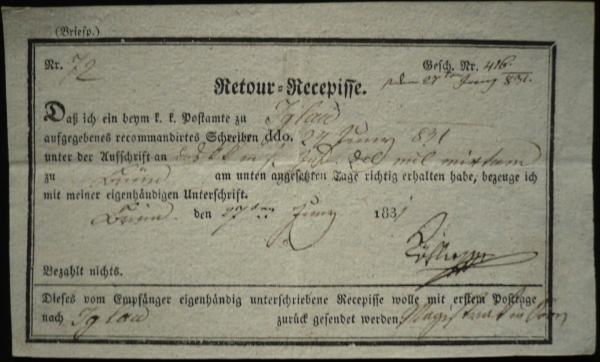 (Briefp.)
Nr. 72 Gesch. Nr. 416.
den 27ten Juny 831.
Retour-Recepisse.
Daß ich ein beym k. k. Postamte zu Iglau
aufgegebenes recommandirtes Schreiben ddo. 27 Juny 831
unter der Aufschrift an
zu Brünn am unten angesetzten Tage richtig erhalten habe, bezeuge ich
mit meiner eigenhändigen Unterschrift.
Brünn. den 27ten Juny 1831
Bezahlt nichts.
Dieses vom Empfänger eigenhändig unterschriebene Recepisse wolle mit erstem Posttage
nach Iglau zurück gesendet werden. Magistrat